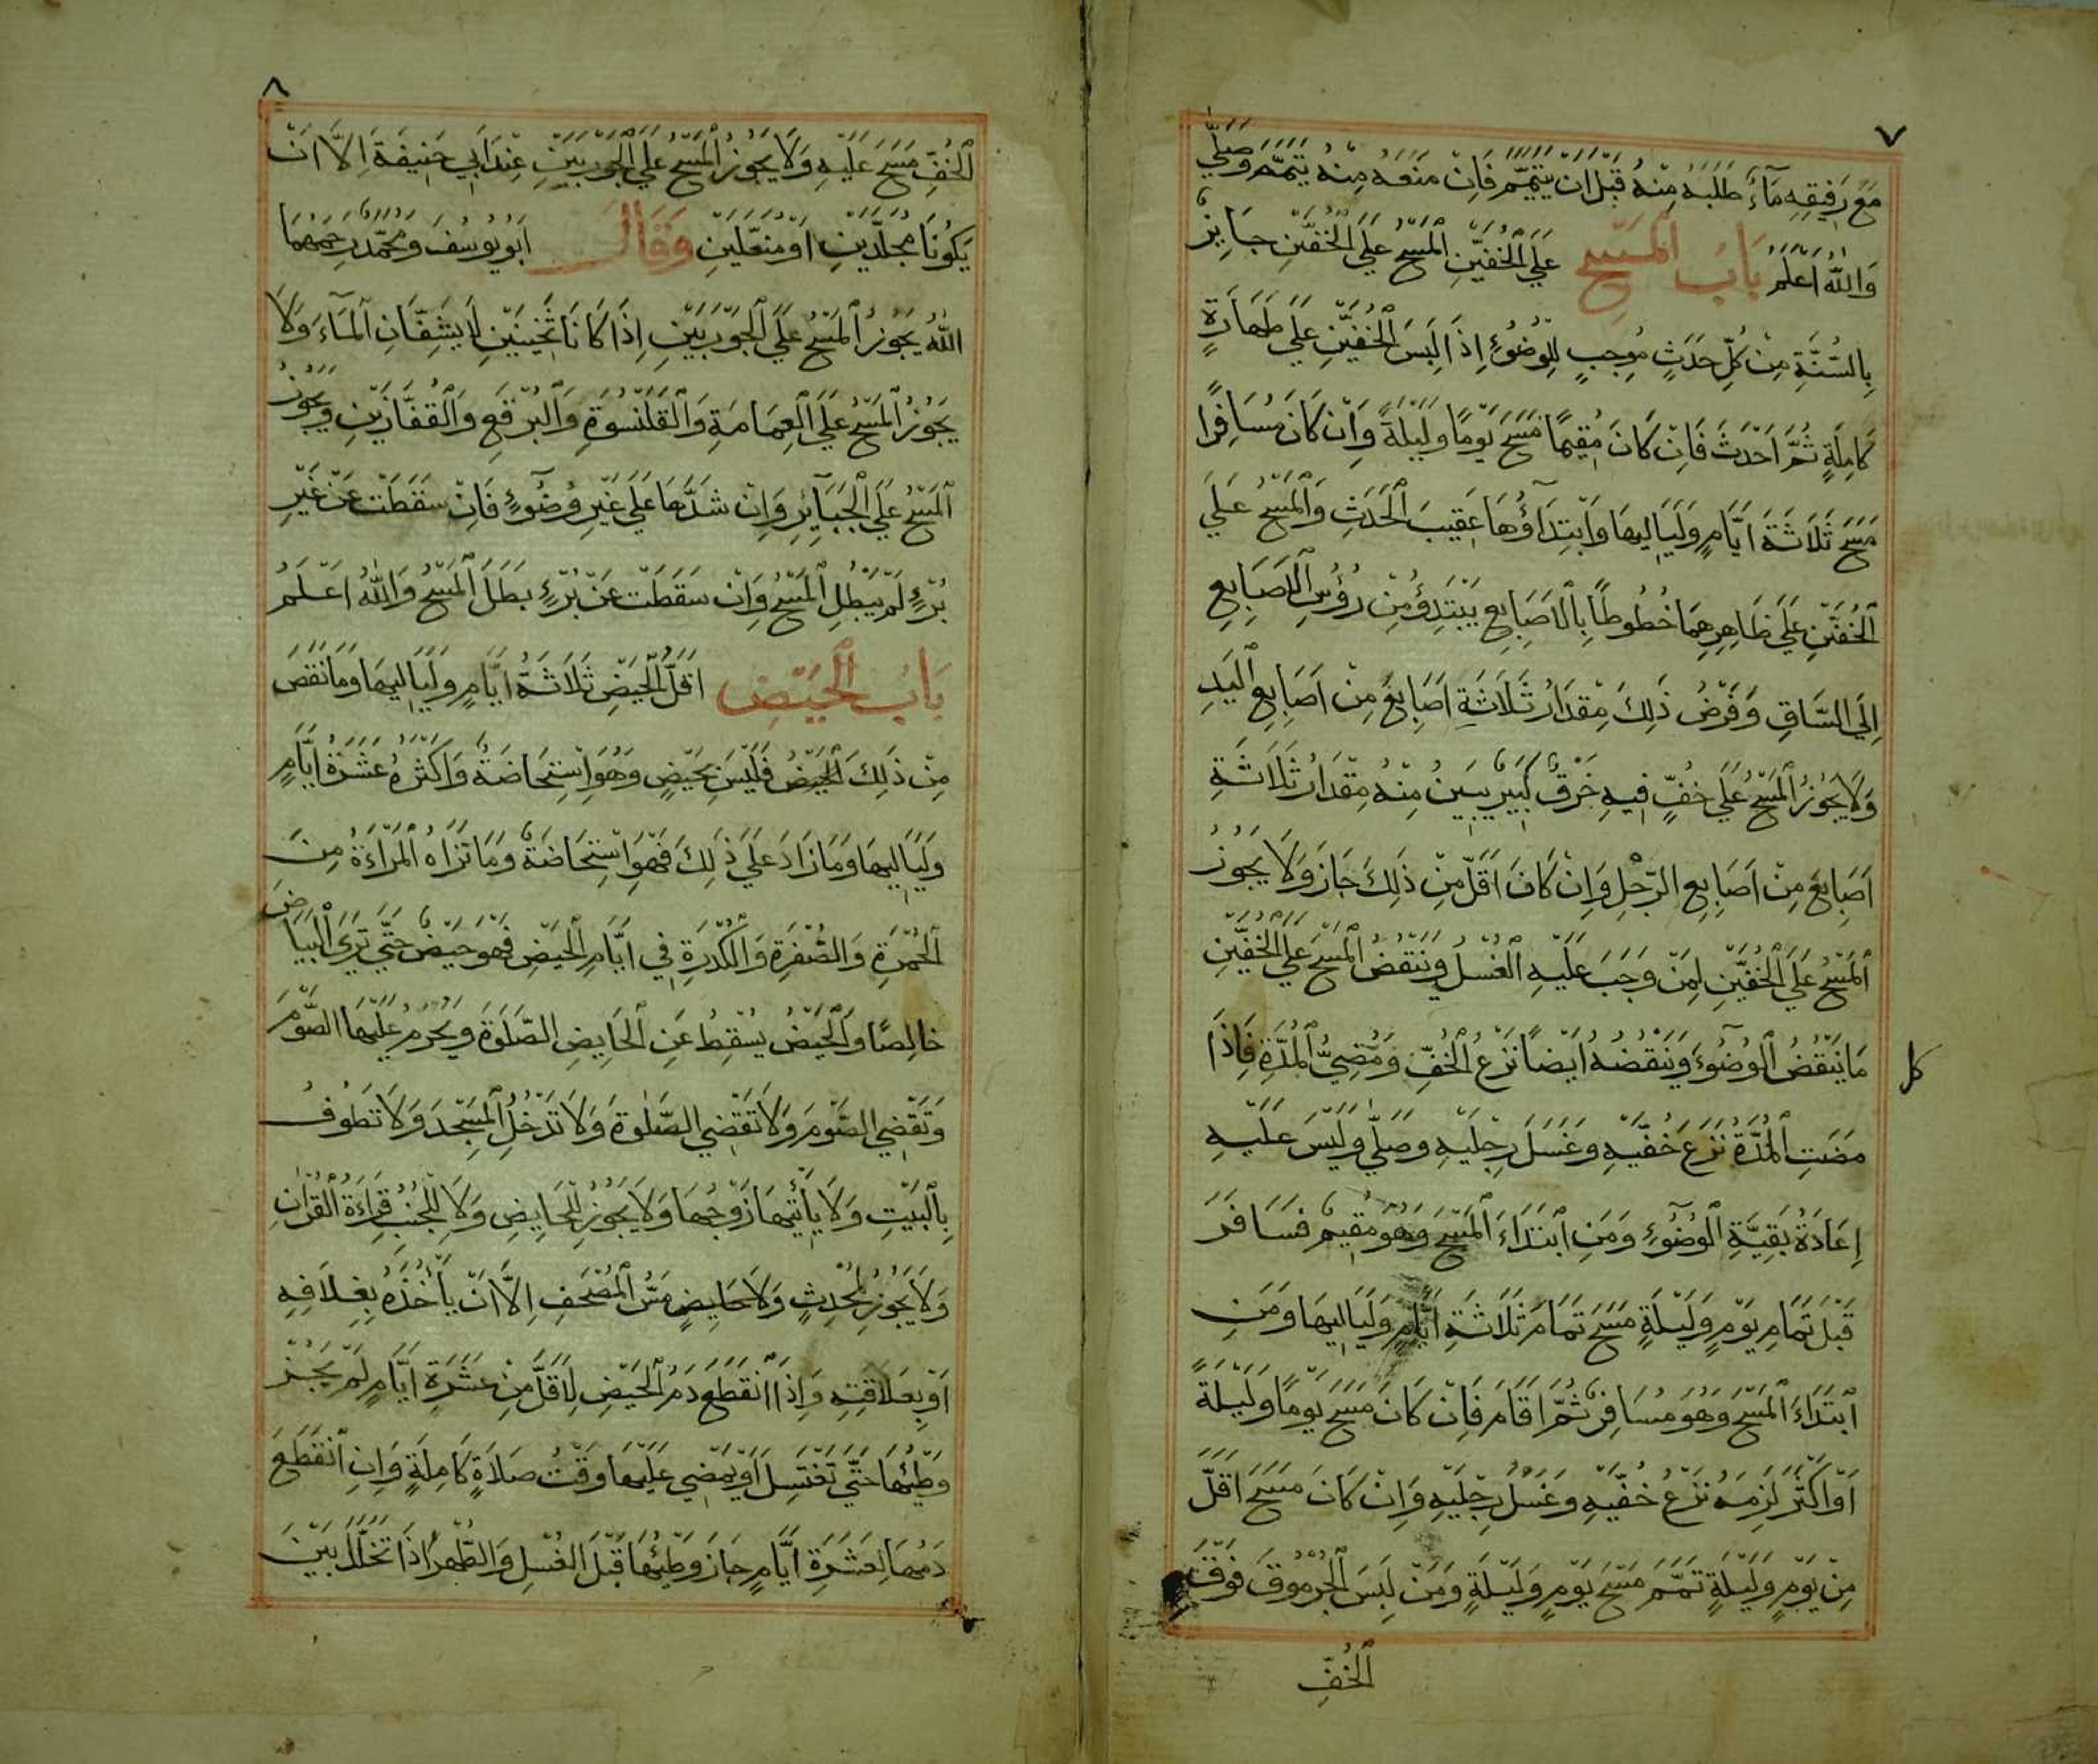 ٧
مَعَ رَفِيقِهِ مَآءٌ طَلَبَهُ مِنْهُ قَبْلَ اَنْ يَتَيَمَّمَ فَاِنْ مَنَعَهُ مِنْهُ يَتَيَمَّمُ وَصَلَّي
وَاللّٰهُ اَعْلَمُ بَابُ الْمَسْحِ عَلَي الْخُفَّيْنِ الْمَسْحُ عَلَي الْخُفَّيْنِ جَايِزٌ
بِالسُّنَّةِ مِنْ كُلِّ حَدَثٍ مُوجِبٍ لِلْوُضُوءِ اِذَا لَبِسَ الْخُفَّيْنِ عَلَي طَهَارَةٍ
كَامِلَةٍ ثُمَّ اَحْدَثَ فَاِنْ كَانَ مُقِيمًا مَسَحَ يَوْمًا وَلَيْلَةً وَاِنْ كَانَ مُسَافِرًا
مَسَحَ ثَلَاثَةَ اَيَّامٍ وَلَيَالِيهَا وَابْتِدَاؤُهَا عَقِيبَ الْحَدَثِ وَالْمَسْحُ عَلَي
الْخُفَّيْنِ عَلَي ظَاهِرِهِمَا خُطُوطًا بِالْاَصَابِعِ يَبْتَدِؤُ مِنْ رُؤُسِ الْاَصَابِعِ
اِلَي السَّاقِ وَفَرْضُ ذَلِكَ مِقْدَارُ ثَلَاثَةِ اَصَابِعَ مِنْ اَصَابِعِ الْيَدِ
وَلَا يَجُوزُ الْمَسْحُ عَلَي خُفٍّ فِيهِ خَرْقٌ كَبِيرٌ يَبِينُ مِنْهُ مِقْدَارُ ثَلَاثَةِ
اَصَابِعَ مِنْ اَصَابِعِ الرِّجْلِ وَاِنْ كَانَ اَقَلَّ مِنْ ذَلِكَ جَازَ وَلَا يَجُوزُ
الْمَسْحُ عَلَي الْخُفَّيْنِ لِمَنْ وَجَبَ عَلَيْهِ الْغُسْلُ وَيَنْقُضُ الْمَسْحَ عَلَي الْخُفَّيْنِ
مَا يَنْقُضُ الْوُضُوءَ وَيَنْقُضُهُ اَيْضًا نَزْعُ الْخُفِّ وَمُضِيُّ الْمُدَّةِ فَاِذَا
مَضَتِ الْمُدَّةُ نَزَعَ خُفَّيْهِ وَغَسَلَ رِجْلَيْهِ وَصَلَّي وَلَيْسَ عَلَيْهِ
اِعَادَةُ بَقِيَّةِ الْوُضُوءِ وَمَنِ ابْتَدَاءَ الْمَسْحَ وَهُوَ مُقِيمٌ فَسَافَرَ
قَبْلَ تَمَامِ يَوْمٍ وَلَيْلَةٍ مَسَحَ تَمَامَ ثَلَاثَةِ اَيَّامٍ وَلَيَالِيهَا وَمَنِ
ابْتَدَاءَ الْمَسْحَ وَهُوَ مُسَافِرٌ ثُمَّ اَقَامَ فَاِنْ كَانَ مَسَحَ يَوْمًا وَلَيْلَةً
اَوْ اَكْثَرَ لَزِمَهُ نَزْعُ خُفَّيْهِ وَغَسْلُ رِجْلَيْهِ وَاِنْ كَانَ مَسَحَ اَقَلَّ
مِنْ يَوْمٍ وَلَيْلَةٍ تَمَّمَ مَسْحَ يَوْمٍ وَلَيْلَةٍ وَمَنْ لَبِسَ الْجُرْمُوقَ فَوْقَ
الْخُفِّ
٨
الْخُفِّ مَسَحَ عَلَيْهِ وَلَا يَجُوزُ الْمَسْحُ عَلَي الْجَوْرَبَيْنِ عِنْدَ اَبِي حَنِيفَةَ اِلَّا اَنْ
يَكُونَا مُجَلَّدَيْنِ اَوْ مُنَعَّلَيْنِ وَقَالَ اَبُو يُوسُفَ وَمُحَمَّدٌ رَحِمَهُمَا
اللّٰهُ يَجُوزُ الْمَسْحُ عَلَي الْجَوْرَبَيْنِ اِذَا كَانَا ثَخِينَيْنِ لَا يَشِفَّانِ الْمَاءَ وَلَا
يَجُوزُ الْمَسْحُ عَلَي الْعِمَامَةِ وَالْقَلَنْسُوَةِ وَالْبُرْقَعِ وَالْقُفَّازَيْنِ وَيَجُوزُ
الْمَسْحُ عَلَي الْجَبَايِرِ وَاِنْ شَدَّهَا عَلَي غَيْرِ وُضُوءٍ فَاِنْ سَقَطَتْ عَنْ غَيْرِ
بُرْءٍ لَمْ يَبْطُلِ الْمَسْحُ وَاِنْ سَقَطَتْ عَنْ بُرْءٍ بَطَلَ الْمَسْحُ وَاللّٰهُ اَعْلَمُ
بَابُ الْحَيْضِ اَقَلُّ الْحَيْضِ ثَلَاثَةُ اَيَّامٍ وَلَيَالِيهَا وَمَا نَقَصَ
مِنْ ذَلِكَ الْحَيْضُ فَلَيْسَ بِحَيْضٍ وَهُوَ اِسْتِحَاضَةٌ وَاَكْثَرُهُ عَشَرَةُ اَيَّامٍ
وَلَيَالِيهَا وَمَا زَادَ عَلَي ذَلِكَ فَهُوَ اسْتِحَاضَةٌ وَمَا تَرَاهُ الْمَرْاَءَةُ مِنَ
الْحُمْرَةِ وَالصُّفْرَةِ وَالْكُدْرَةِ فِي اَيَّامِ الْحَيْضِ فَهُوَ حَيْضٌ حَتَّي تَرَي الْبَيَاضَ
خَالِصًا وَالْحَيْضُ يُسْقِطُ عَنِ الْحَايِضِ الصَّلَوةَ وَيَحْرُمُ عَلَيْهَا الصَّوْمَ
وَتَقْضِي الصَّوْمَ وَلَا تَقْضِي الصَّلٰوةَ وَلَا تَدْخُلُ الْمَسْجِدَ وَلَا تَطُوفُ
بِالْبَيْتِ وَلَا يَأْتِيهَا زَوْجُهَا وَلَا يَجُوزُ لِلْحَايِضِ وَلَا لِلْجُنُبِ قِرَاءَةُ الْقُرْاٰنِ
وَلَا يَجُوزُ لِمُحْدِثٍ وَلَا حَايِضٍ مَسُّ الْمُصْحَفِ اِلَّا اَنْ يَأْخُذَهُ بِغِلَافِهِ
اَوْ بِعَلَاقَتِهِ وَاِذَا انْقَطَعَ دَمُ الْحَيْضِ لِاَقَلَّ مِنْ عَشَرَةِ اَيَّامٍ لَمْ يَجُزْ
وَطْئُهَا حَتَّي تَغْتَسِلَ اَوْ يَمْضِي عَلَيْهَا وَقْتُ صَلَاةٍ كَامِلَةٍ وَاِنِ انْقَطَعَ
دَمُهَا لِعَشَرَةِ اَيَّامٍ جَازَ وَطْئُهَا قَبْلَ الْغُسْلِ وَالطُّهْرُ اِذَا تَخَلَّلَ بَيْنَ